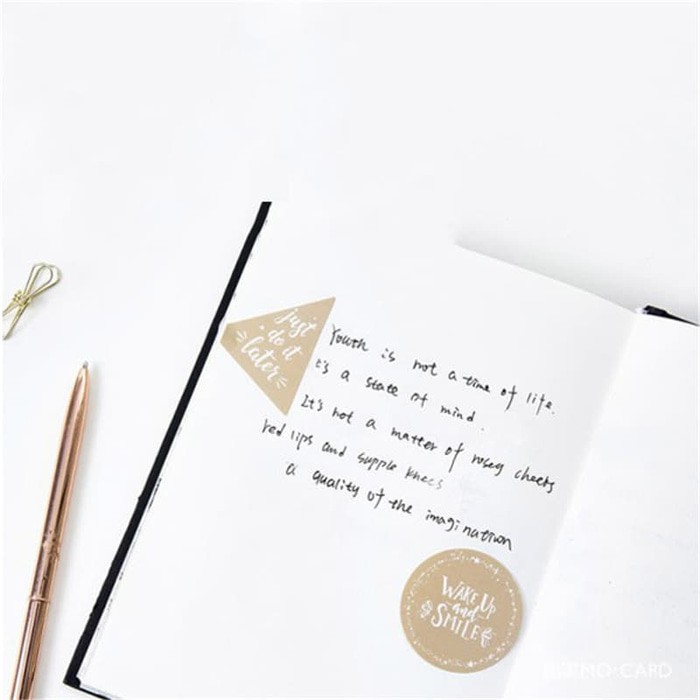 just
do it
later
Youth is not a time of life.
it's a state of mind.
It's not a matter of rosey cheeks
red lips and supple knees
a quality of the imagination
WAKE UP
and
SMILE
MO·CARD